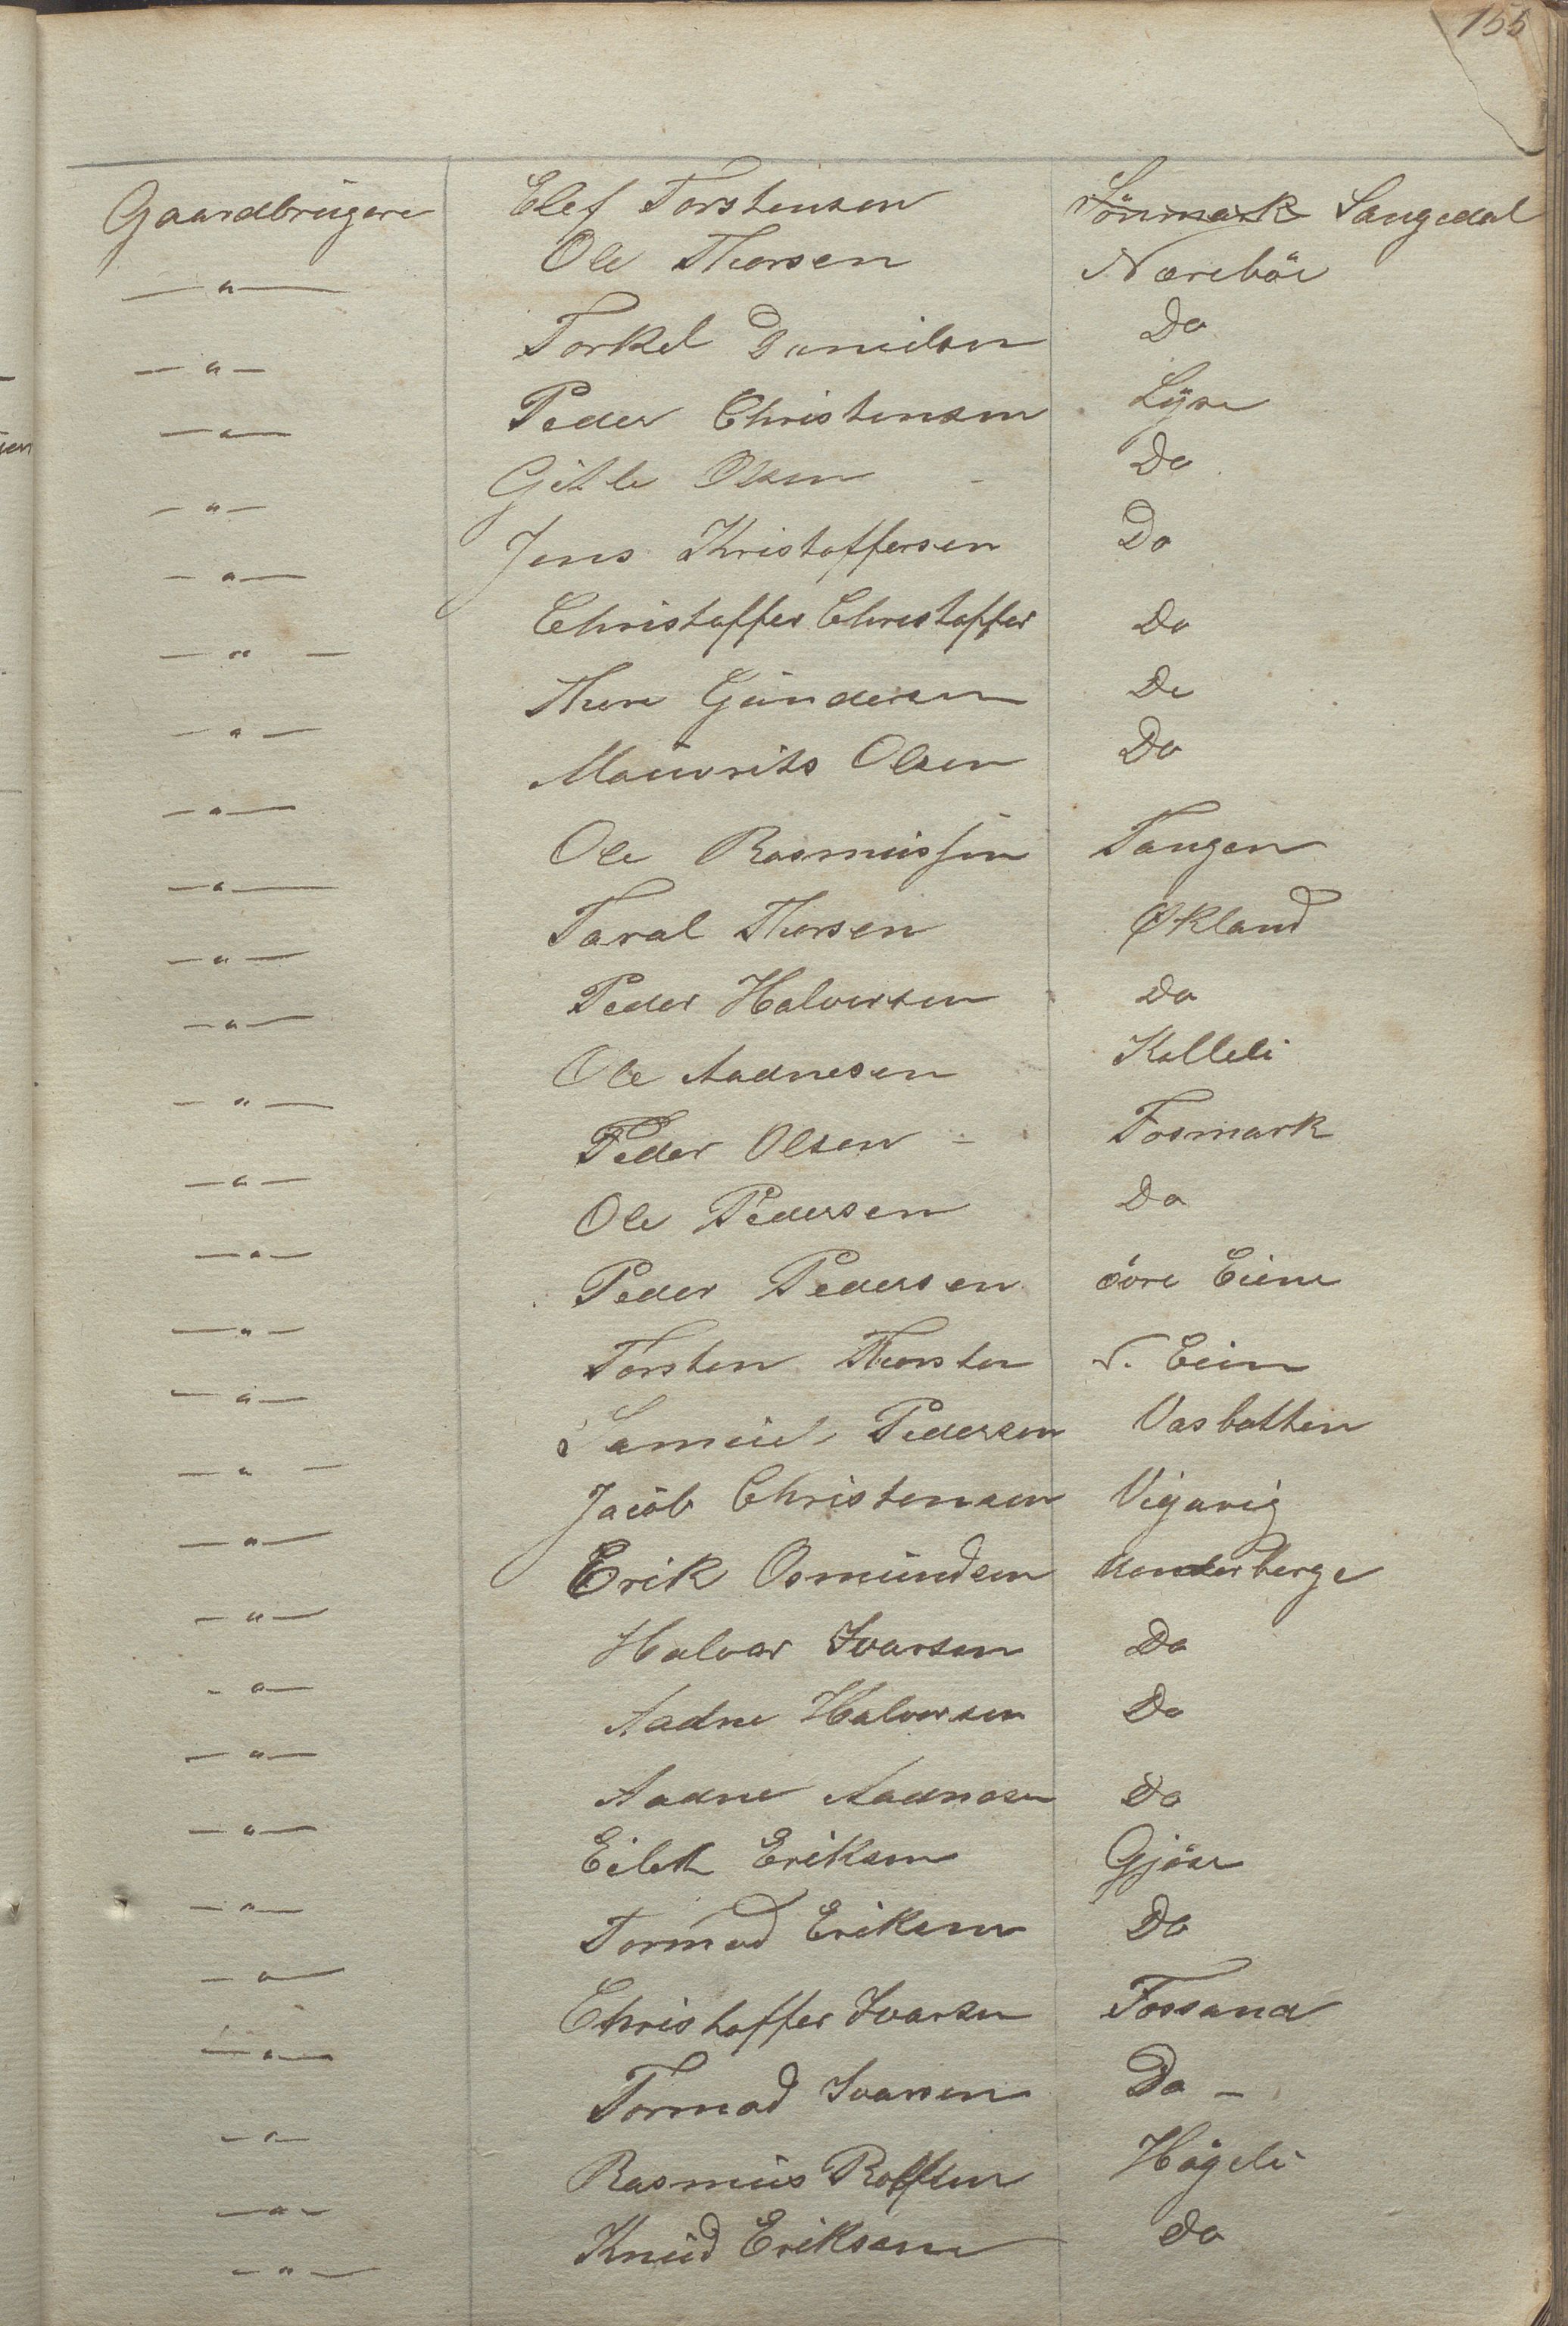 155
Gaardbrügere Elef Torstensen Lönmark Sangedal
—"— Ole Thorsen Næreböe
—"— Torkel Danielsen Do
—"— Peder Christensen Lÿse
—"— Gitle Olsen Do
—"— Jens Kristoffersen Do
—"— Christoffer Christoffer Do
—"— Thore Gündersen Do
—"— Mauorits Olsen Do
—"— Ole Rasmüssen Tangen
—"— Taral Thorsen Økland
—"— Peder Halvorsen Do
—"— Ole Aadnesen Kalleli
—"— Peder Olsen Fosmark
—"— Ole Pedersen Do
—"— Peder Pedersen övre Eiene
—"— Torsten Thorsten N. Eien
—"— Samüel Pedersen Vasbotten
—"— Jacob Christensen Vigavig
—"— Erik Osmündsen berge
—"— Halvor Ivarsen Do
—"— Aadne Halvorsen Do
—"— Aadne Aadnesen Do
—"— Eilert Eriksen Gjöse
—"— Tormod Eriksen Do
—"— Christoffer Ivarsen Fossand
—"— Tormod Ivarsen Do –
—"— Rasmüs Rolfsen Högeli
—"— Knüd Eriksen Do